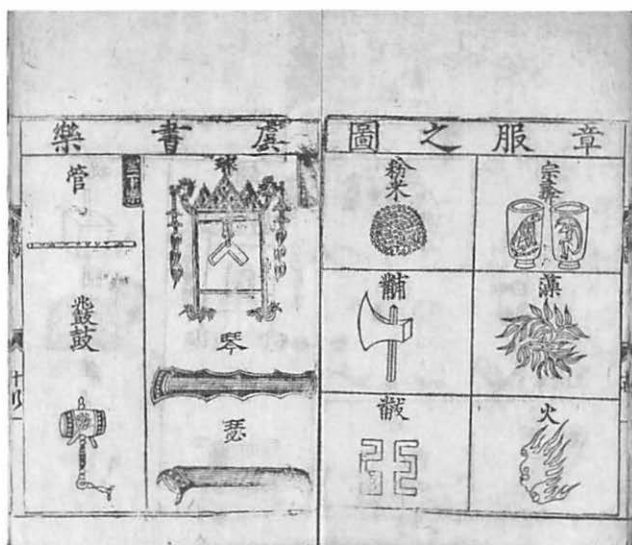 章服之圖
宗彝
藻
火
粉米
黼
黻
虞書樂
琴
瑟
管
鼗鼓